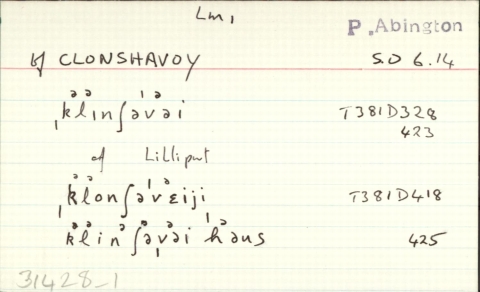 Lm,
P. Abington
of CLONSHAVOY S.D 6.14
ˌklɪnʃəvəi T381D328
423
of Lilliput
ˌklonʃəvɛiji T381D418
klinʃəˌvəi ˈhəus 425
31428_1